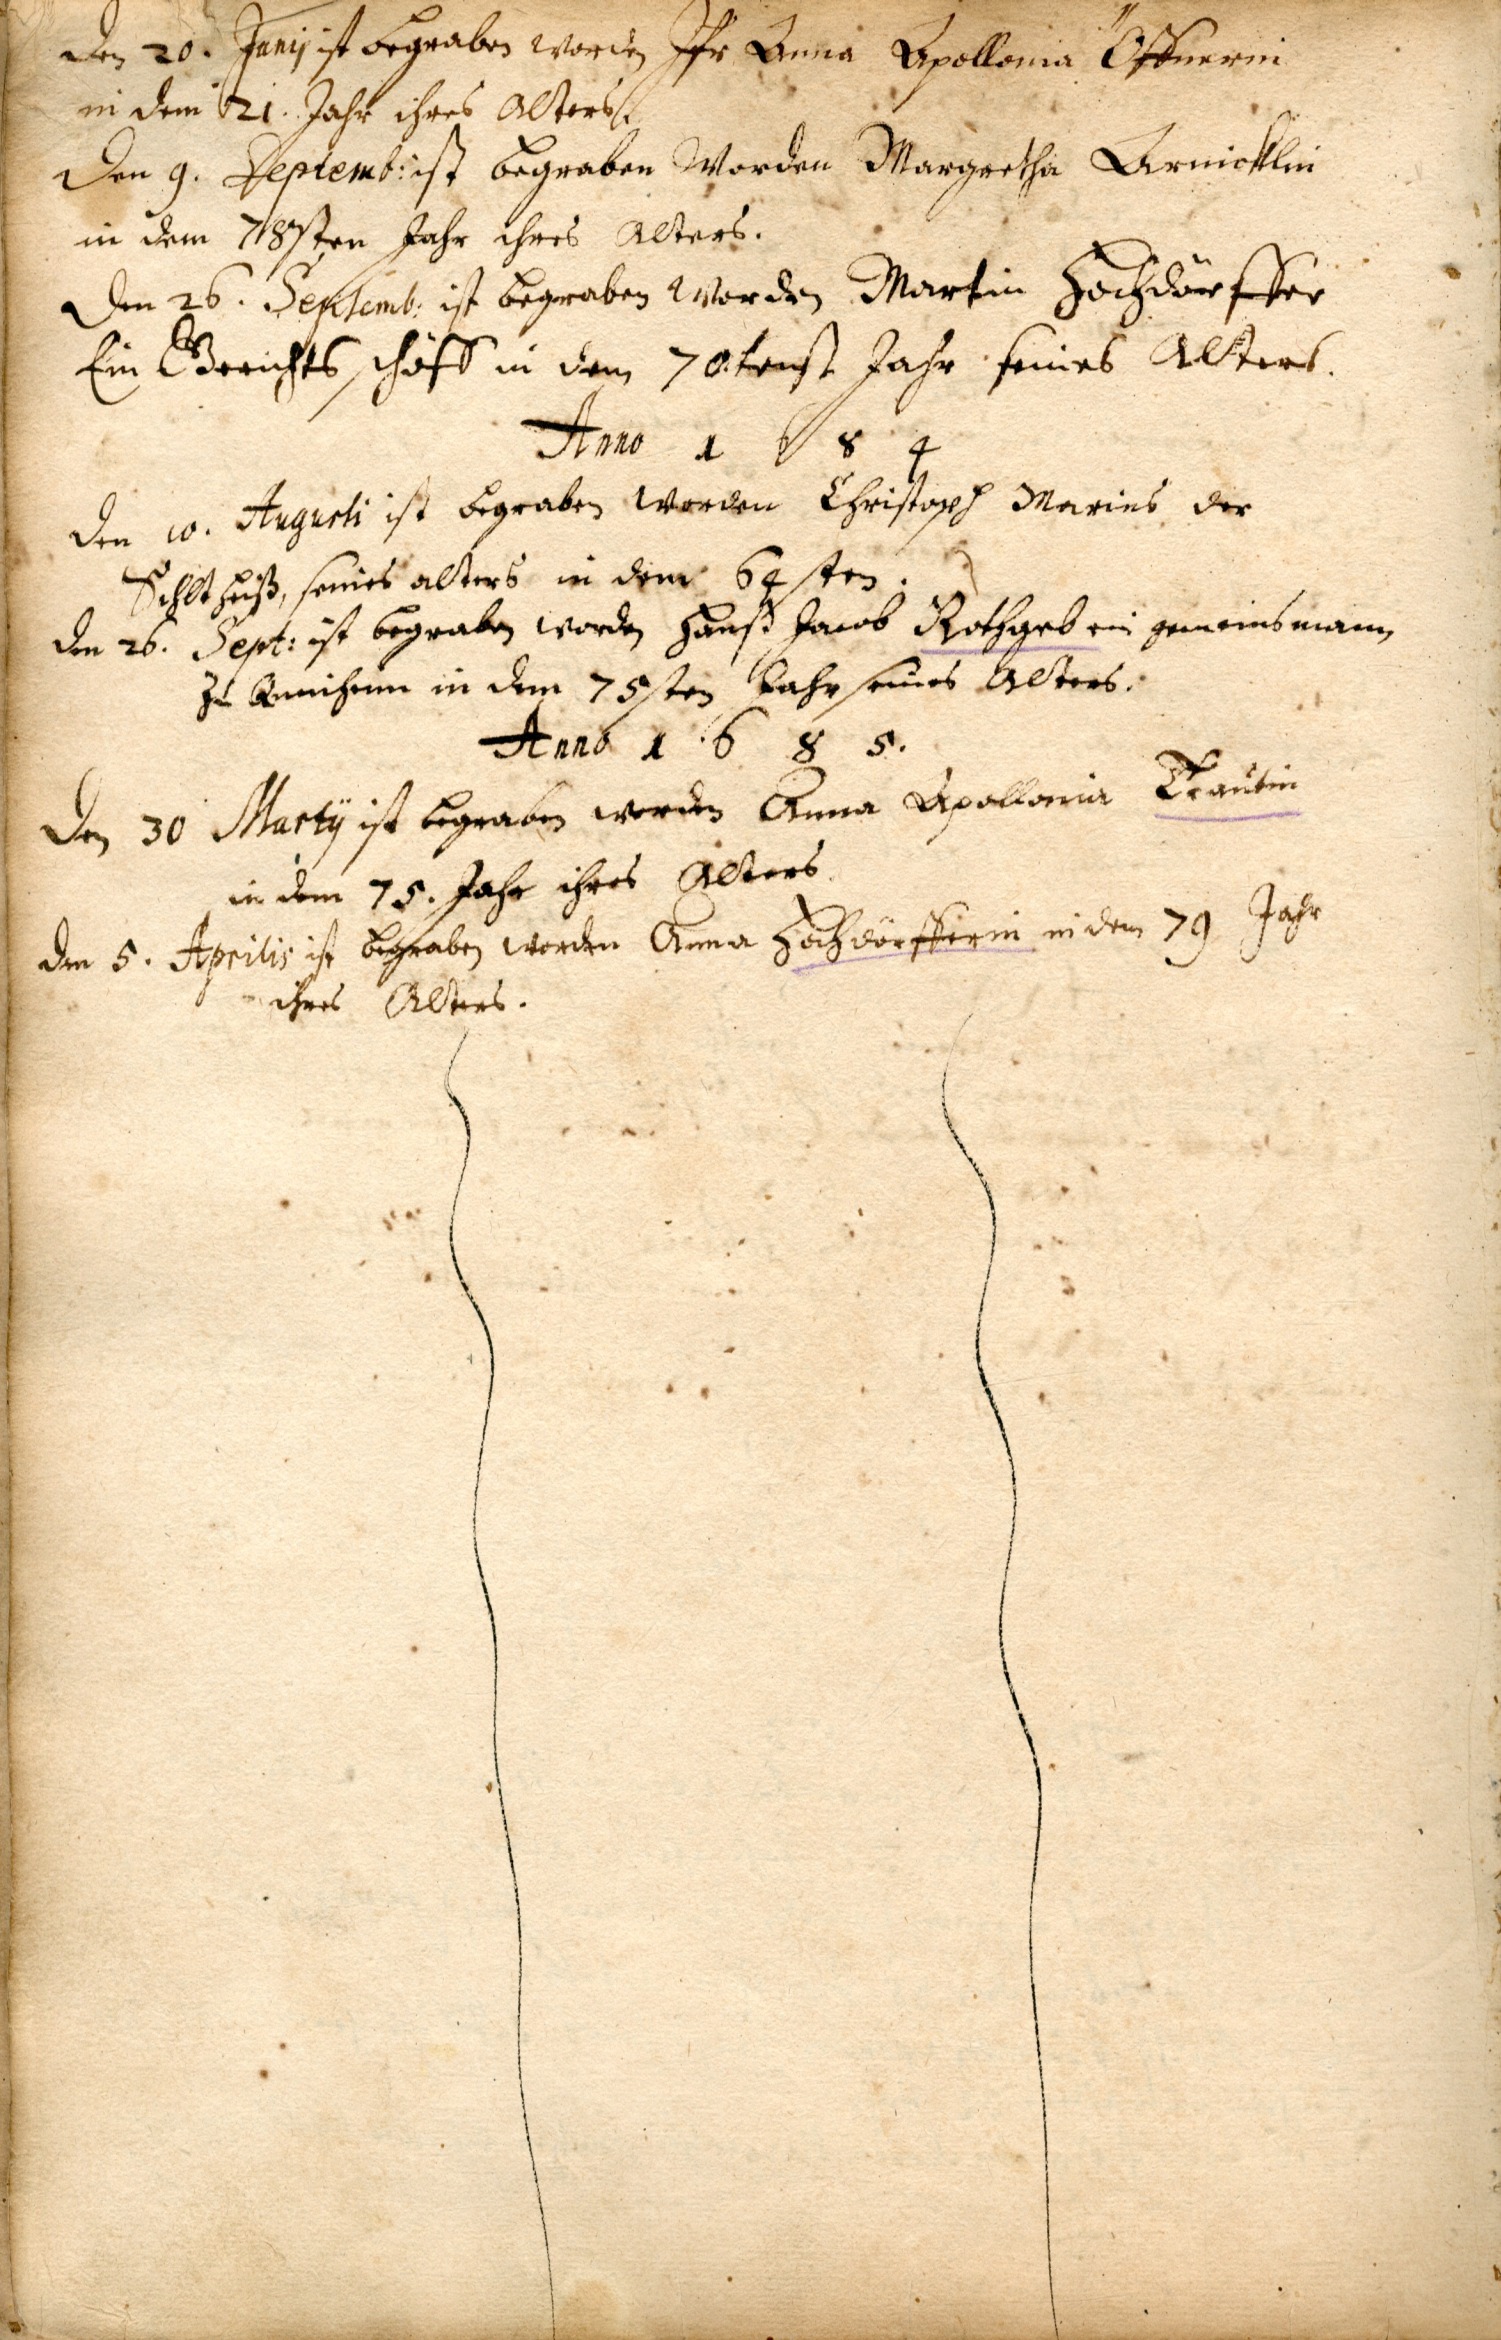 Den 20. Junij ist begraben worden Jfr Anna Apollonia Öffnerin
in dem 21. Jahr ihres Alters.
Den 9. Septemb: ist begraben Worden Margretha Arnicklin
in dem 78sten Jahr ihres Alters.
Den 26. Septemb: ist begraben Worden Martin Hochdörffer
Ein Gerichts schöff in dem 70. Jahr seines Alters.
Anno 1 6 8 4
Den 10. Augusti ist begraben worden Christoph Marius der
Schltheiß, seines alters in dem 64sten.
Den 26. Sept: ist begraben worden Hanß Jacob Rothgeb ein gemeinsmann
zu in dem 75sten Jahr seines Alters.
Anno 1 6 8 5.
Den 30 Martij ist begraben worden Anna Apollonia Trautin
in dem 75. Jahr ihres Alters
Den 5. Aprilis ist begraben worden Anna Hochdörfferin in dem 79 Jahr
ihres Alters.